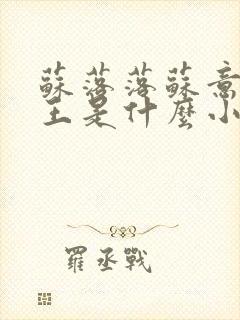 蘇落落蘇意
主是什麼小
羅丞戰